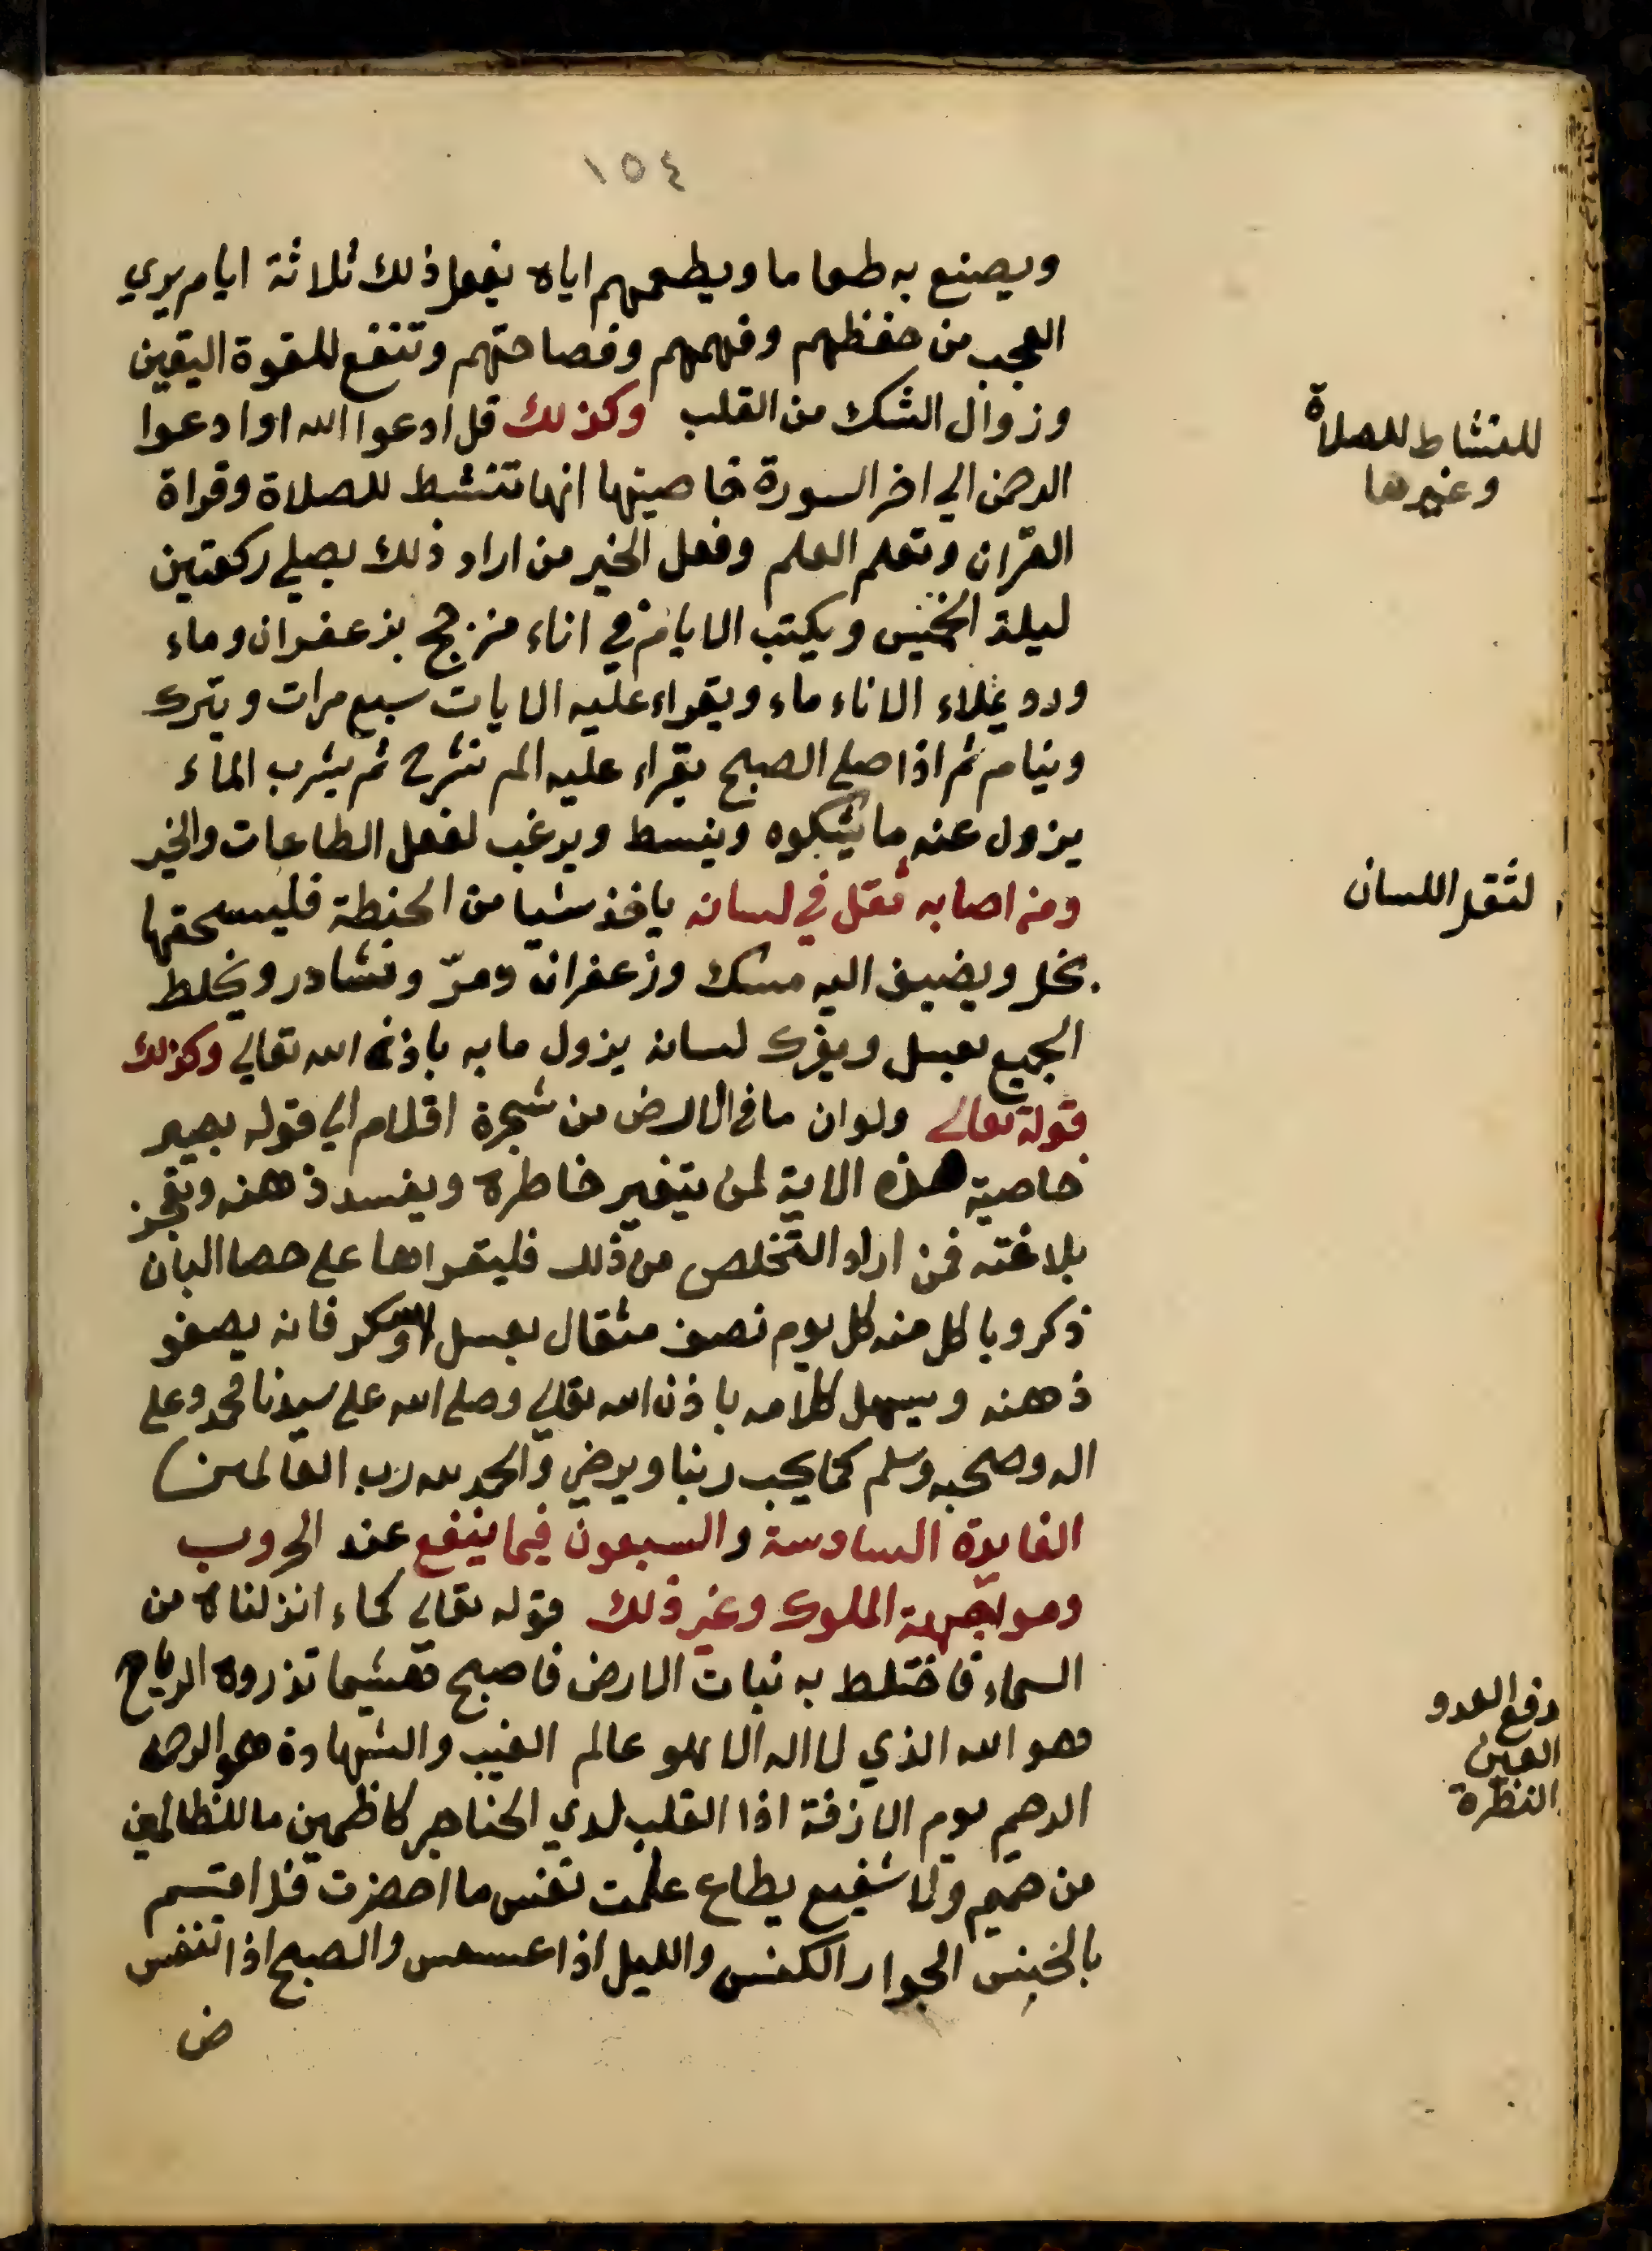 ١٥٤
ويصنع به طعاما ويطعمهم اياه يفعل ذلك ثلاثة ايام يري
العجب من حفظهم وفهمهم وفصاحتهم وتنفع للقوة اليقين
وزوال الشك من القلب وكذلك قل ادعوا الله اوا دعوا
الرحمن الي اخر السورة خاصيتها انها تنشط للصلاة وقراة
القران وتعلم العلم وفعل الخير من اراد ذلك يصلي ركعتين
ليلة الخميس ويكتب الايام في اناء مزجج بزعفران وماء
ورد ويملاء الاناء ماء ويقراء عليه الايات سبع مرات ويترك
وينام ثم اذا صلي الصبح يقراء عليه الم نشرح ثم يشرب الماء
يزول عنه ما يشكوه وينسط ويرغب لفعل الطاعات والخير
ومن اصابه ثقل في لسانه ياخذ شيا من الحنطة فليسحقها
بخل ويضيف اليه مسك وزعفران ومرّ ونشادر ويخلط
الجميع بعسل ويفرك لسانه يزول ما به باذن الله تعالي وكذلك
قولة تعالي ولوان ما في الارض من شجرة اقلام الي قوله بصير
خاصية هذه الاية لمن يتغير خاطره ويفسد ذهنه وتعجز
بلاغته فمن اراد التخلص من ذلك فليقراها علي حصا البان
ذكر ويا كل منه كل يوم نصف مثقال بعسل او سكر فانه يصفو
ذهنه ويسهل كلامه باذن الله تعالي وصلي الله علي سيدنا محمد وعلي
اله وصحبه وسلم كما يحب ربنا ويرضي والحمد لله رب العالمين
الفايدة السادسة والسبعون فيما ينفع عند الحروب
ومواجهة الملوك وغير ذلك قوله تعالي كماء انزلناه من
السماء فاختلط به نبات الارض فاصبح هشيما تذروه الرياح
هو الله الذي لا اله الا هو عالم الغيب والشهادة هو الرحمن
الرحيم يوم الازفة اذا القلب لدي الحناجر كاظمين ما للظالمين
من حميم ولا شفيع يطاع علمت نفس ما احضرت فلا اقسم
بالخنس الجوار الكنس والليل اذا عسعس والصبح اذا تنفس
ص
للنشاط للصلاة
وغيرها
لثقل اللسان
دفع العدو
العين
النظرة